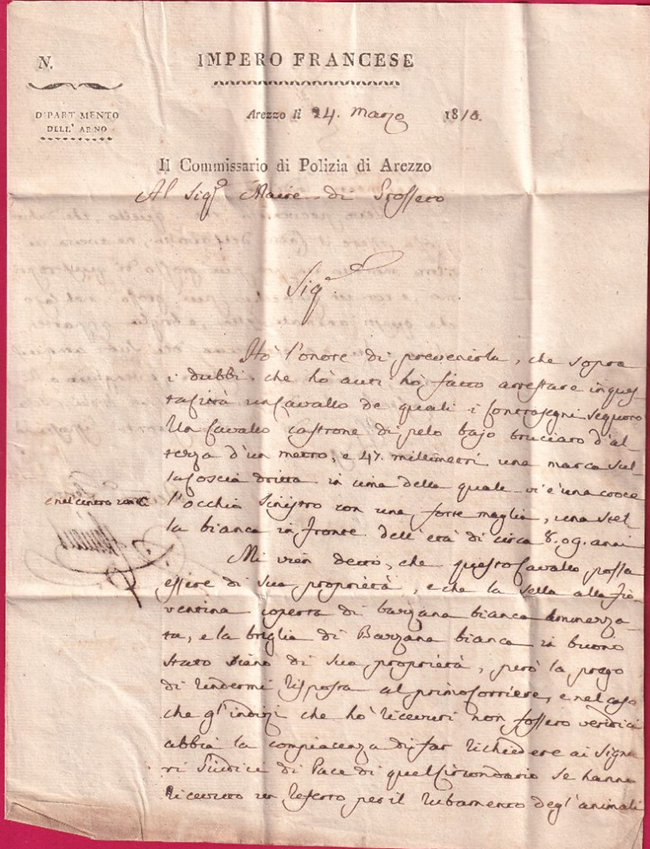 N.
IMPERO FRANCESE
DIPARTIMENTO
DELL' ARNO
Arezzo li 24. Marzo 1810.
Il Commissario di Polizia di Arezzo
Al Sigr. Maire di
Sigr.
Hò l'onore di prevenirla, che sopra
i dubbi che hò auti hò fatto arrestare in ques
ta Città un Cavallo de quali i Contrasegni seguono
Un Cavallo castrone di pelo bajo bruciato d'al
tezza d'un metro, e 47. millimetri una marca sul
la Coscia dritta in cima della quale vi è una croce
e nel centro
l'occhio sinistro con una forte maglia, una stel
la bianca in fronte dell'età di circa 8. o 9. anni
Mi vien detto, che questo Cavallo possa
essere di sua proprietà, e che la sella alla Fio
rentina coperta di barzana bianca
ta, e la briglia di Barzana bianca in buono
stato siano di sua proprietà, però la prego
di rendermi risposta al primo Corriere, e nel caso
che gl'indizi che hò ricevuti non fossero veridici
abbia la compiacenza di far richiedere ai Signo
ri Giudici di Pace di quel Circondario se hanno
ricevuto un referto per il rubamento degl'animali